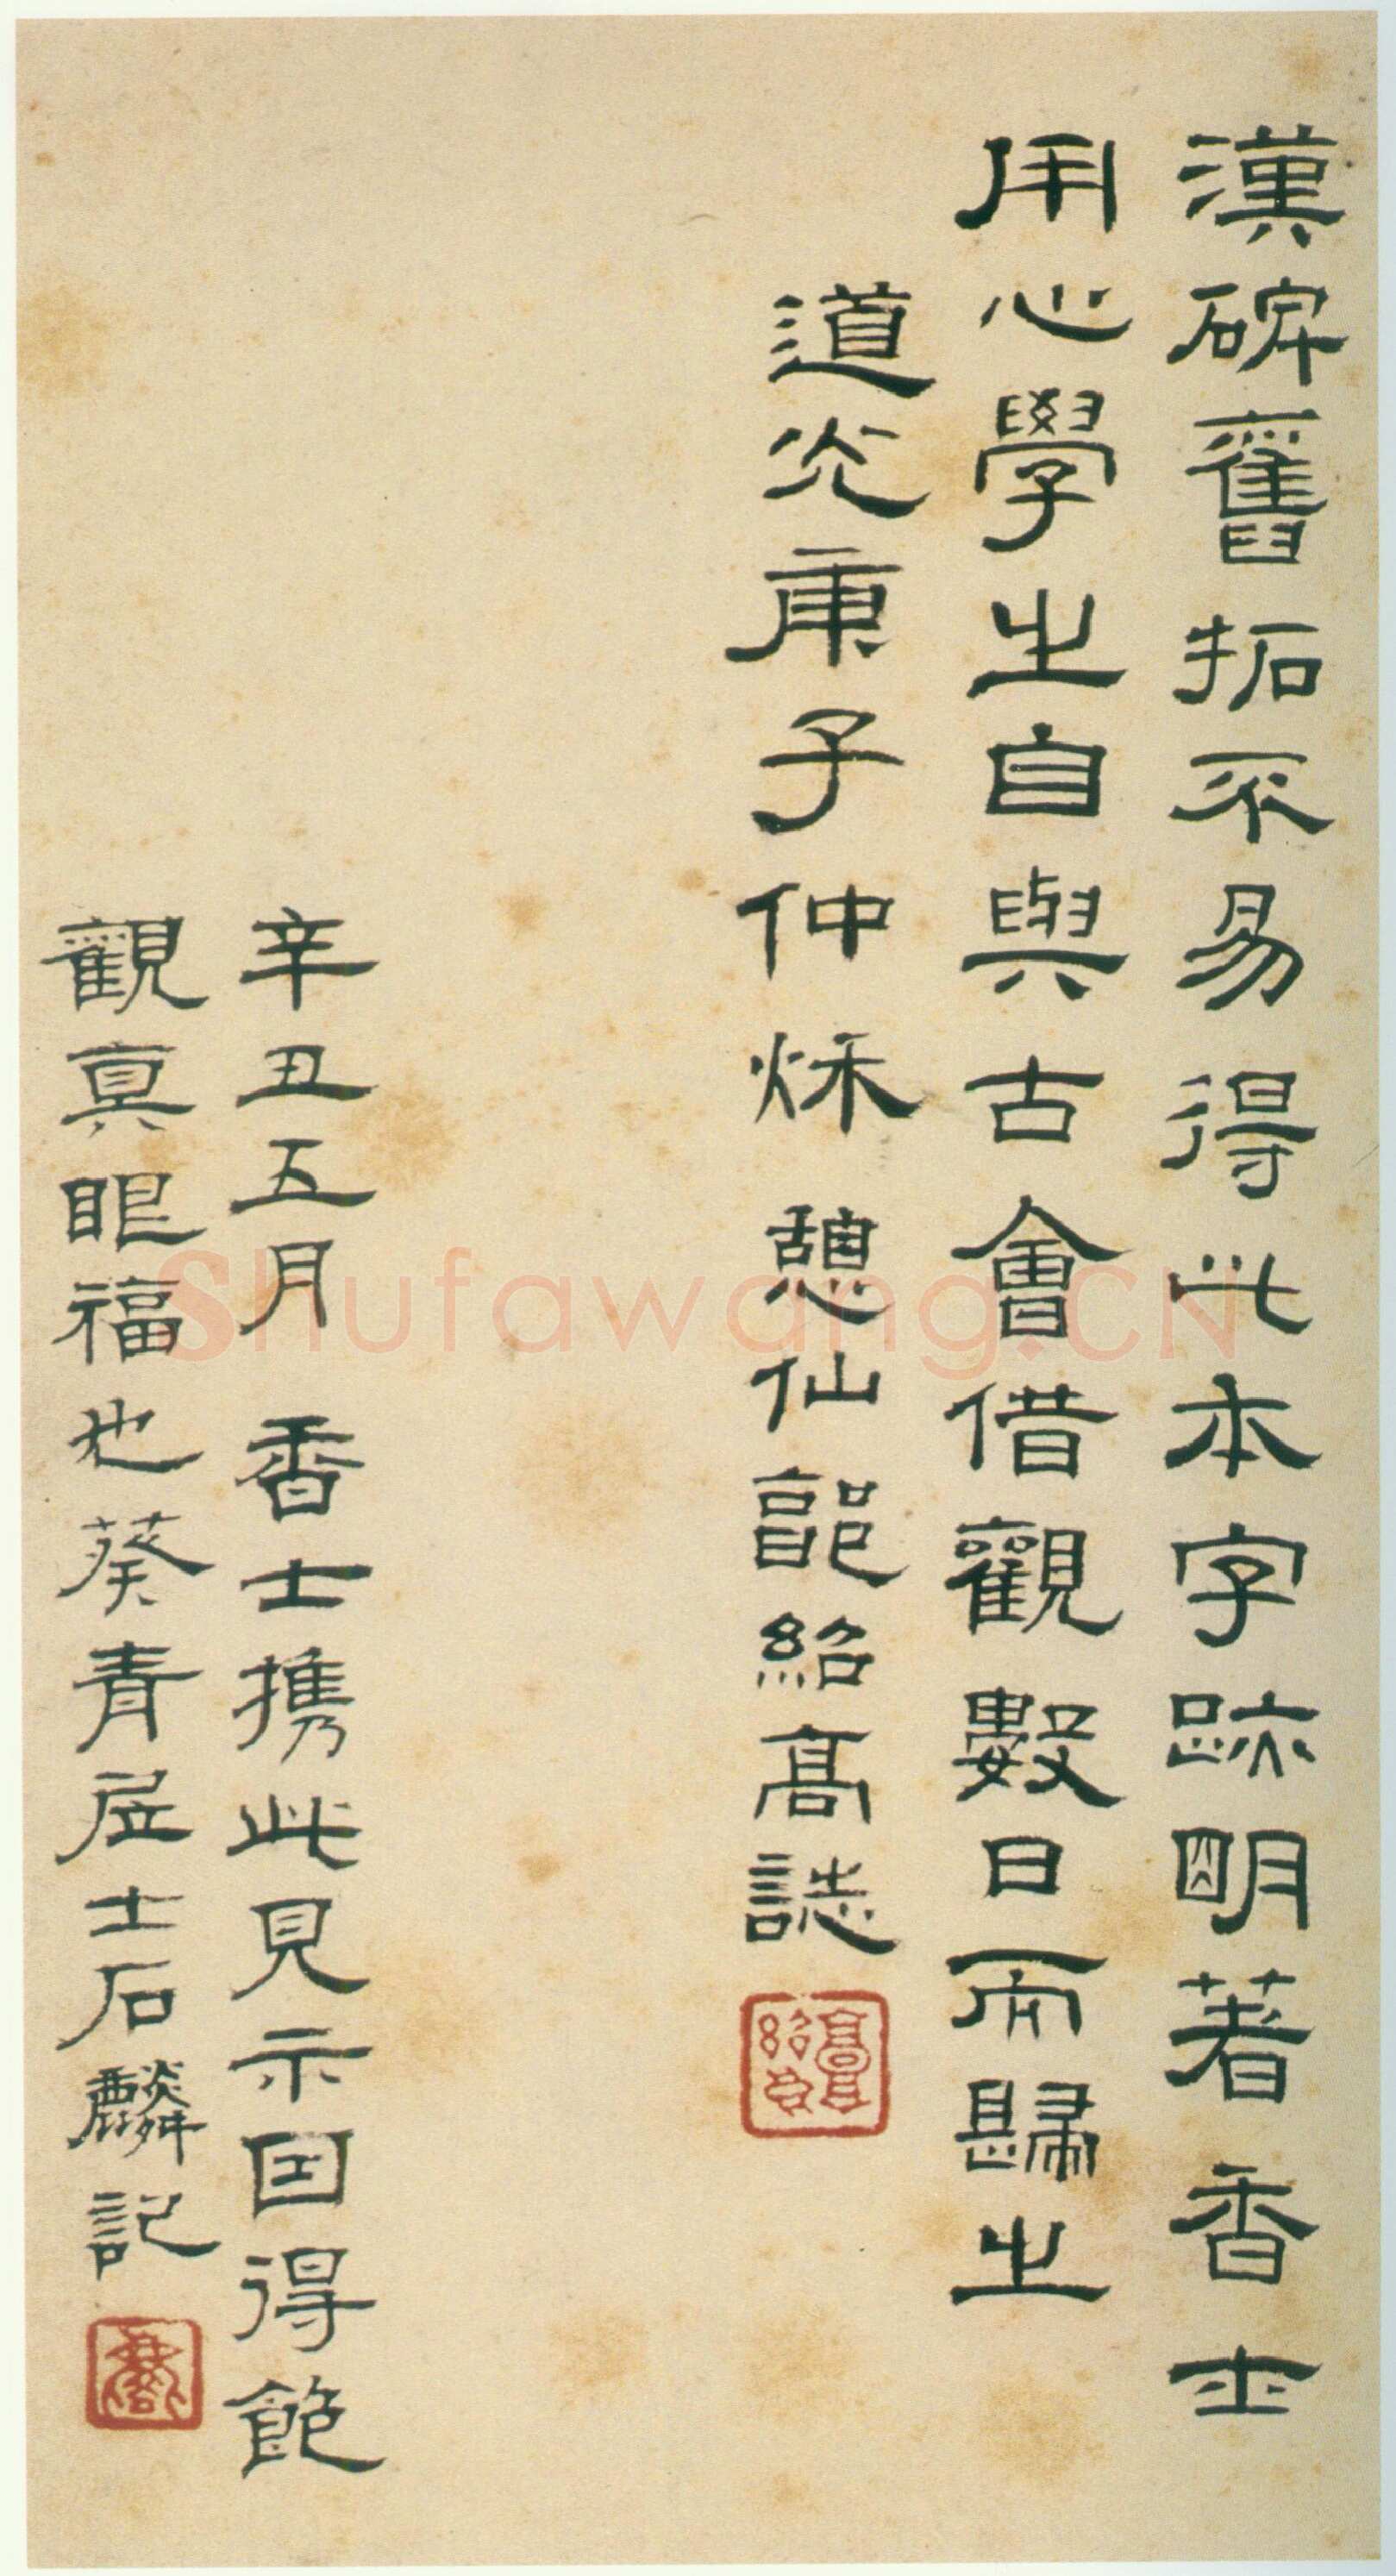 漢碑舊拓不易得此本字跡明著香士
用心學之自與古會借觀數日而歸之
道光庚子仲秌憩仙郭紹高誌
辛丑五月香士携此見示因得飽
觀真眼福也葵青居士石麟記
Shufawang.CN